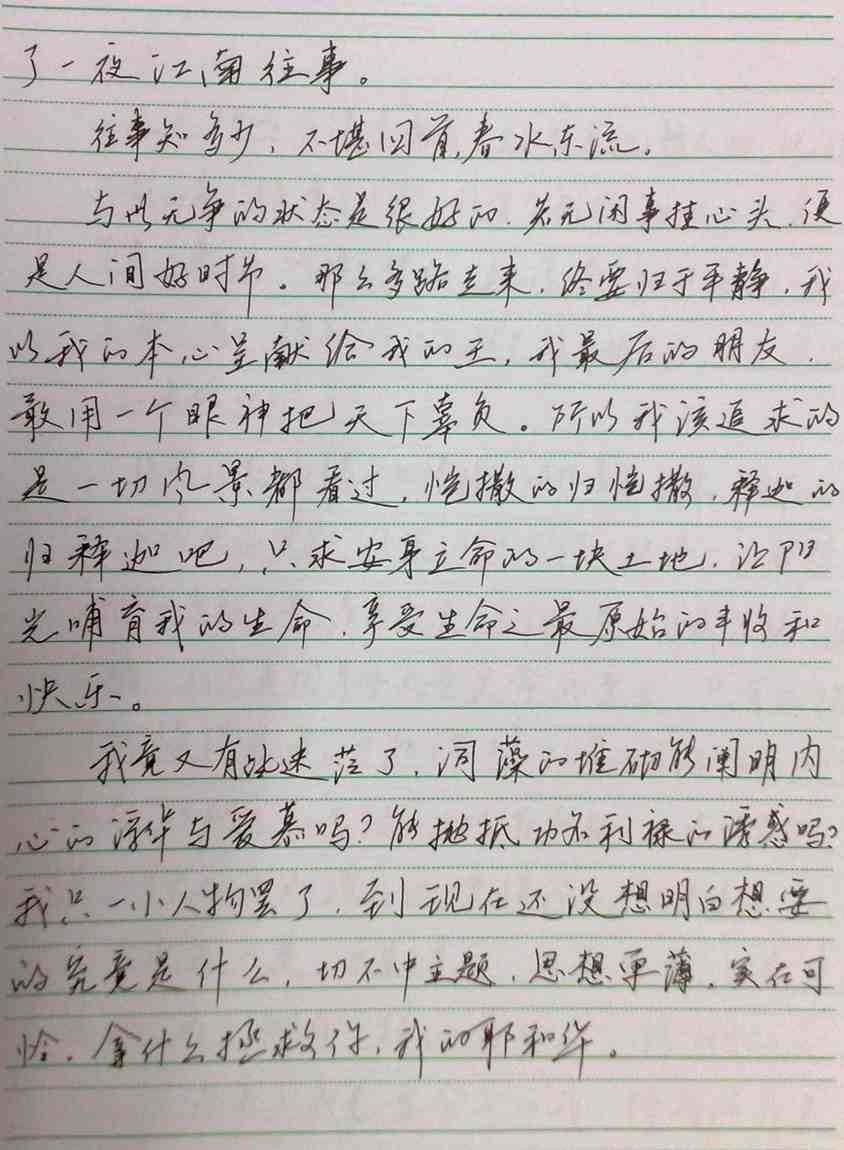 了一夜江南往事。
往事知多少，不堪回首，春水东流。
与世无争的状态是很好的，若无闲事挂心头，便
是人间好时节。那么多路走来，终要归于平静，我
以我的本心呈献给我的王，我最后的朋友，
敢用一个眼神把天下辜负。所以我该追求的
是一切风景都看过，恺撒的归恺撒，释迦的
归释迦吧，只求安身立命的一块土地，让阳
光哺育我的生命，享受生命之最原始的丰收和
快乐。
我竟又有些迷茫了，词藻的堆砌能阐明内
心的浮华与爱慕吗？能抛抵功名利禄的诱惑吗？
我只一小人物罢了，到现在还没想明白想要
的究竟是什么，切不中主题，思想单薄，实在可
怜，拿什么拯救你，我的耶和华。